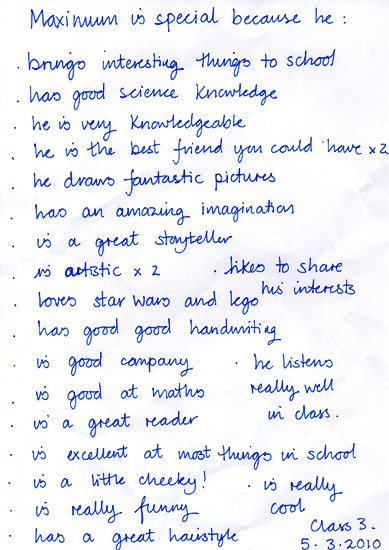 Maximum is special because he :
. brings interesting things to school
. has good science knowledge
. he is very knowledgeable
. he is the best friend you could have x2
. he draws fantastic pictures
. has an amazing imagination
. is a great storyteller
. is artistic x 2
. likes to share his interests
. loves star wars and lego
. has good good handwriting
. is good company
. he listens really well in class.
. is good at maths
. is a great reader
. is excellent at most things in school
. is a little cheeky!
. is really cool
. is really funny
. has a great hairstyle
Class 3.
5.3.2010